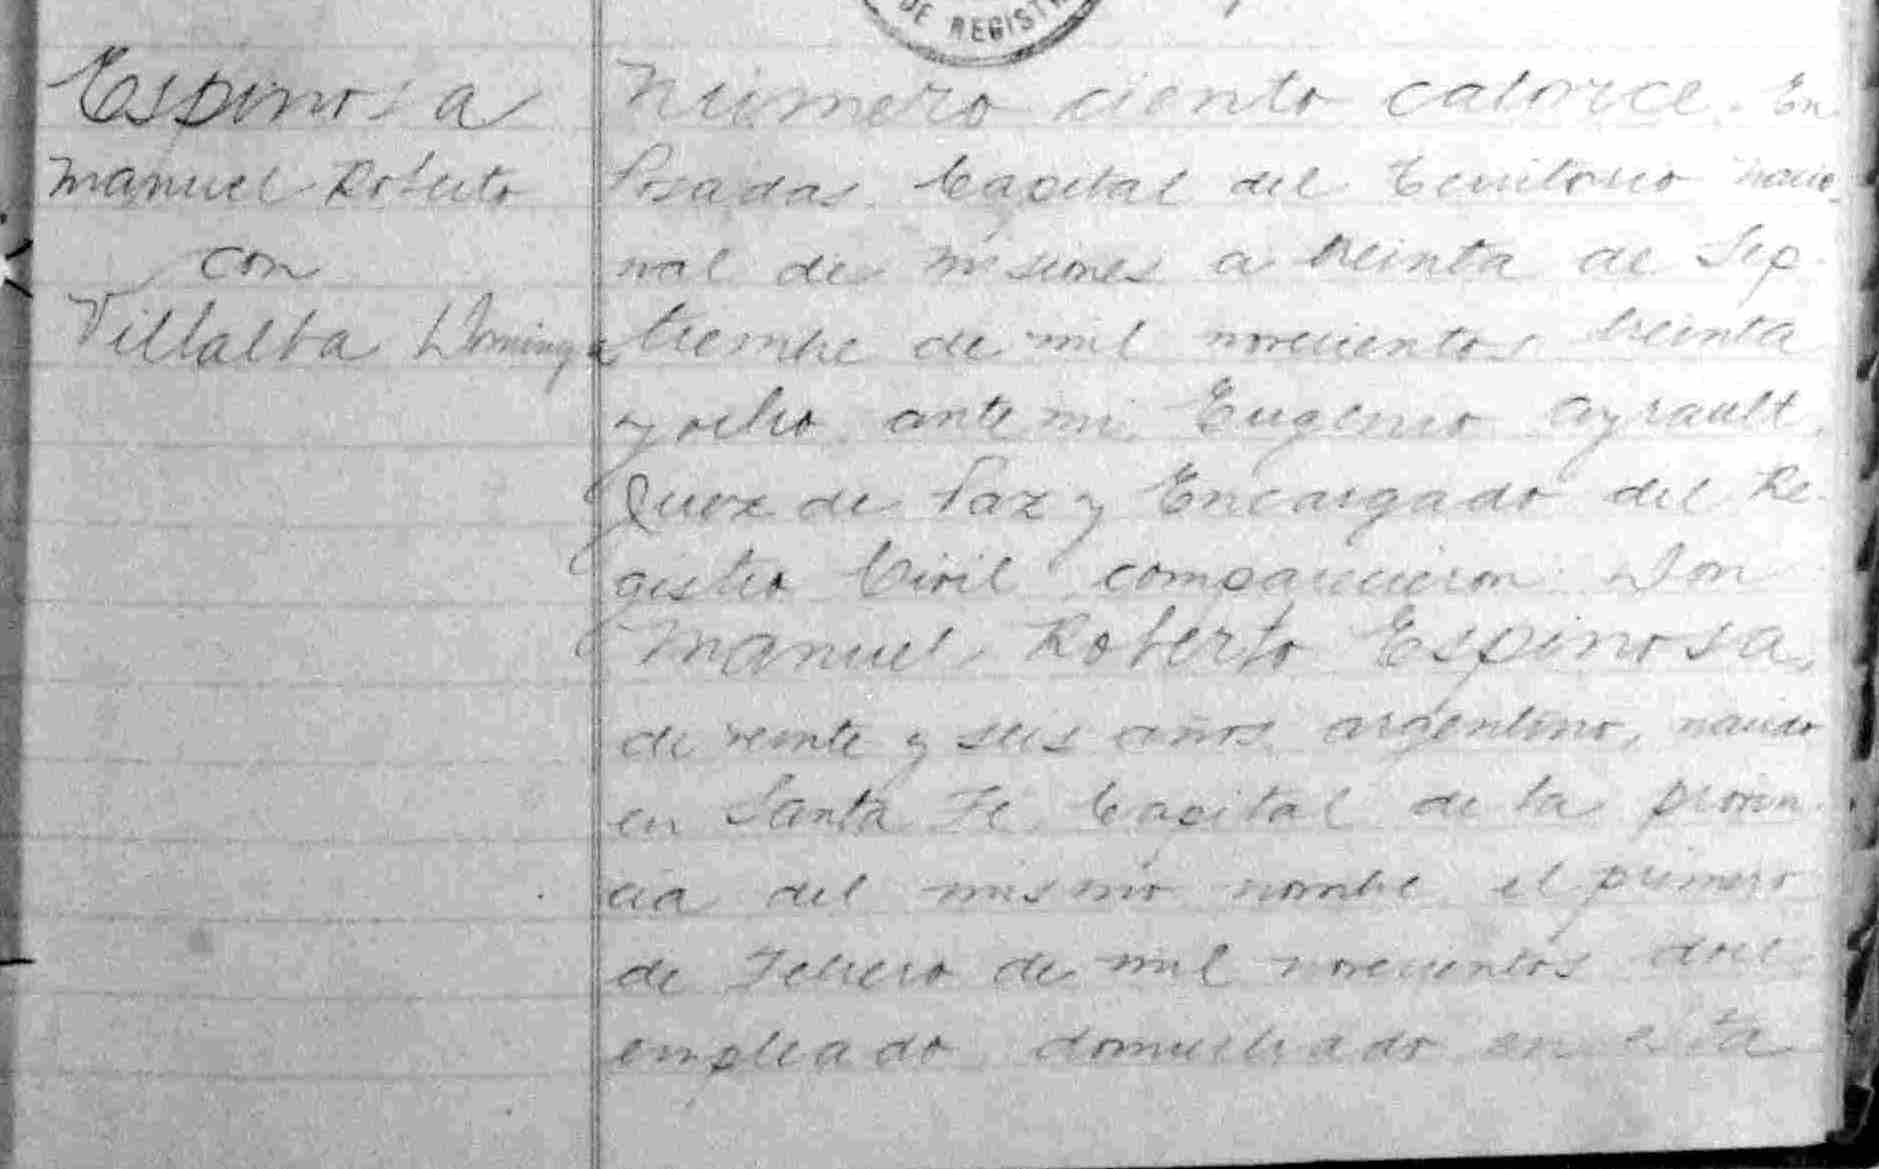 DE REGISTR
Espinosa
Manuel Roberto
con
Villalba Dominga
Número ciento catorce. En
Posadas Capital del Territorio nacio-
nal de Misiones a treinta de Sep-
tiembre de mil novecientos treinta
y ocho ante mi Eugenio Ayrault,
Juez de Paz y Encargado del Re-
gistro Civil comparecieron Don
Manuel Roberto Espinosa,
de veinte y seis años argentino, nacido
en Santa Fé Capital de la provin-
cia del mismo nombre el primero
de Febrero de mil novecientos doce
empleado domiciliado en esta